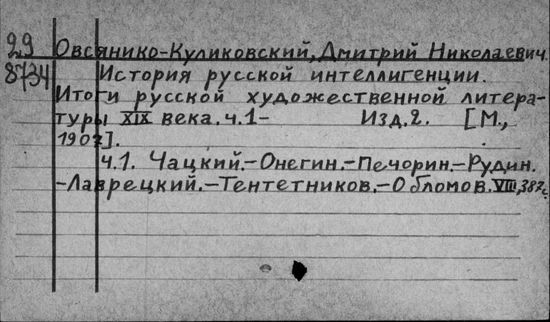 29 Овсянико-Куликовский, Дмитрий Николаевич.
8734 История русской интеллигенции.
Итоги русской художественной литера-
туры XIX века. ч.1- Изд.2. [М.,
1907].
ч.1. Чацкий.-Онегин.-Печорин.-Рудин.
-Лаврецкий.-Тентетников.-Обломов. VIII, 387с.